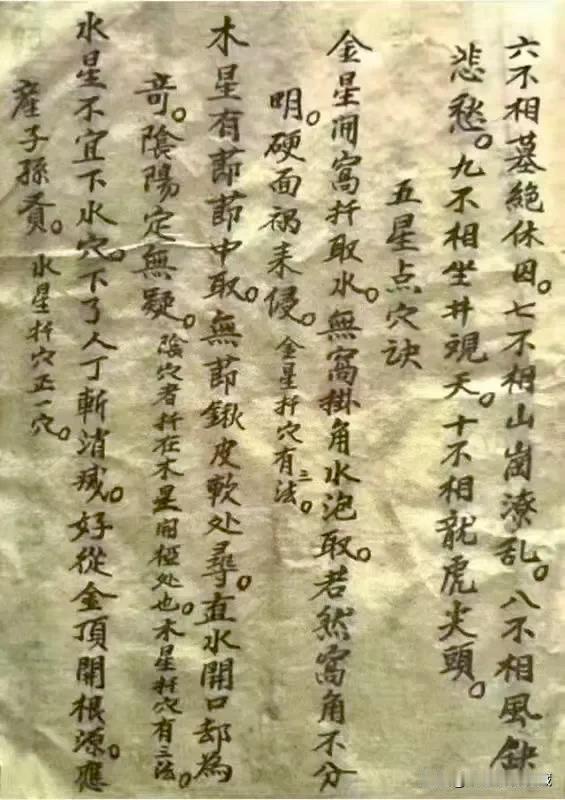 六不相墓絶休囚。七不相山崗潦乱。八不相風缺
悲愁。九不相坐井視天。十不相龍虎尖頭。
五星点穴訣
金星開窩扦取水。無窩掛角水泡取。若然窩角不分
明。硬面禍来侵。金星扦穴有三法。
木星有節節中取。無節鍬皮軟处尋。直水開口却為
竒。陰陽定無疑。陰穴者扦在木星開極处也。木星扦穴有三法。
水星不宜下水穴。下了人丁斬消减。好從金頂開根源。應
産子孫贵。水星扦穴正一穴。